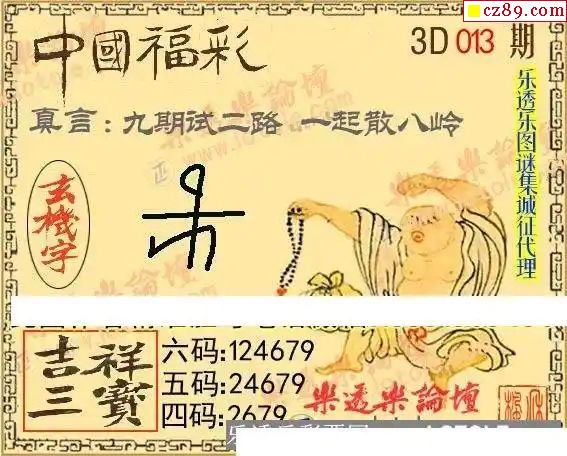 cz89.com
中國福彩
3D 013 期
真言：九期试二路 一起散八岭
乐透乐图谜集诚征代理
玄機字
吉祥三寶
六码:124679
五码:24679
四码:2679
樂透樂論壇